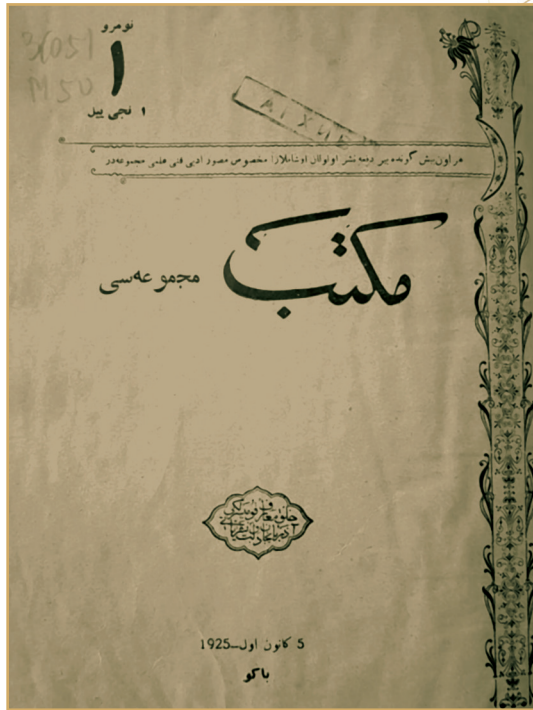 نومرو
١
١ نجی ییل
3(051
M50
هر اون‌بش گونده بیر دفعه نشر اولونان اوشاقلارا مخصوص مصور ادبی فنی علمی مجموعه‌در
مکتب مجموعه‌سی
5 کانون اول—1925
باکو